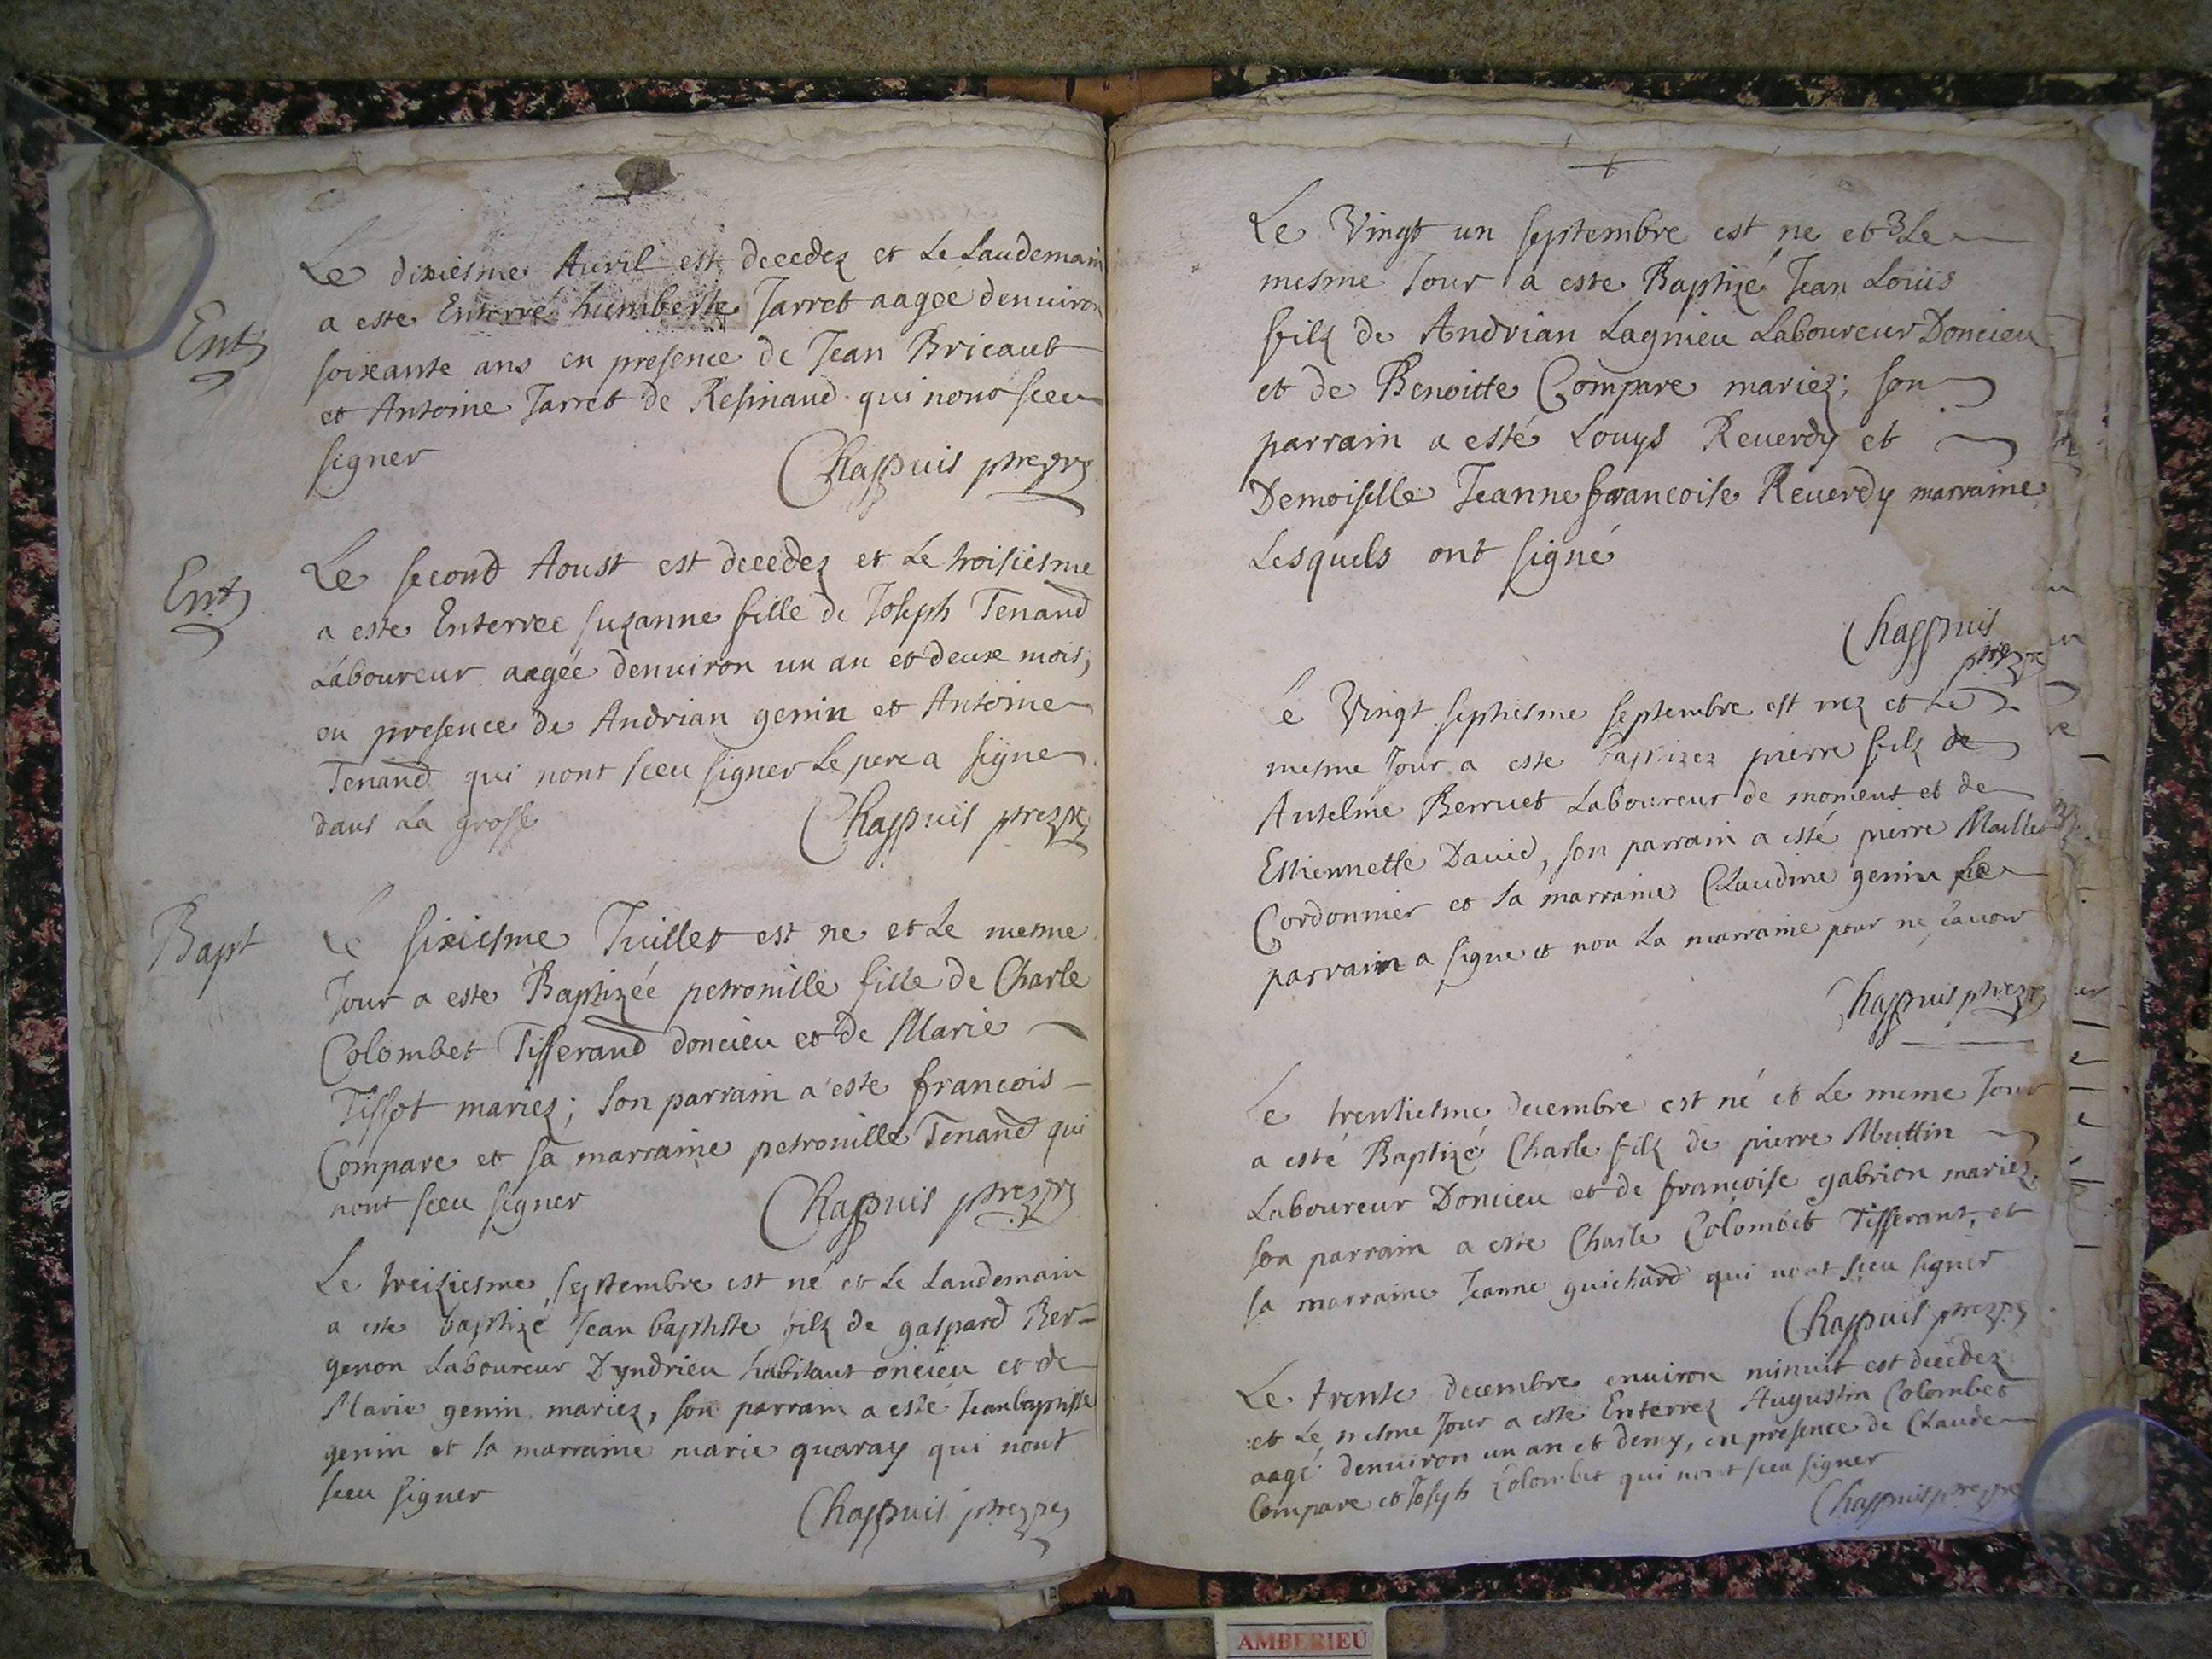 Le dixiesme Auril est deeedez et Le Laudemain
Ent
a este Enterré humberte Jarret aagee denuiron
soixante ans en presence de Jean Bricault
et Antoine Jarret de Resinaud qui nont sceu
signer
Chappuis ptre
Ent
Le second Aoust est deeedez et Le troisiesme
a este Enterree suzanne fille de Joseph Tenand
Laboureur aagée denuiron un an et deux mois,
en presence de Andrian genin et Antoine
Tenand qui nont sceu signer Le pere a signe
dans La grosse
Chappuis ptre
Bapt
Le sixiesme Juillet est ne et Le mesme
Jour a este Baptizéé petronille fille de Charle
Colombet Tisserand doncieu et de Marie
Tissot mariez; son parrain a este francois
Compare et sa marraine petronille Tenand qui
nont sceu signer
Chappuis ptre
Le treiziesme septembre est né et Le Landemain
a este baptizé Jean baptiste filz de gaspard Ber=
genon Laboureur Dyndrieu habitant oncieu et de
Marie genin mariez, son parrain a esté Jeanbaptiste
genin et sa marraine marie quaray qui nont
sceu signer
Chappuis ptre
Le Vingt un septembre est ne et Le
mesme Jour a este Baptizé Jean Louis
filz de Andrian Lagnieu Laboureur Doncieu
et de Benoitte Compare mariez; son
parrain a esté Louys Reuerdy et
Demoiselle Jeanne francoise Reuerdy marraine
Lesquels ont signé
Chappuis
ptre
Le Vingt septiesme septembre est nez et Le
mesme Jour a este baptizez pierre filz de
Antelme Berruet Laboureur de moment et de
Estiennette Dauid, son parrain a esté pierre Maillet
Cordonnier et sa marraine Claudine genin Le
parrain a signe et non La marraine pour ne sçauoir
Chappuis ptre
Le trentiesme decembre est né et Le meme Jour
a esté Baptizé Charle filz de pierre Muttin
Laboureur Doncieu et de françoise gabrion mariez,
son parrain a este Charle Colombet Tisserant, et
sa marraine Jeanne guichard qui nont sceu signer
Chappuis ptre
Le trente decembre enuiron minuit est deeedez
et Le mesme Jour a este Enterrez Augustin Colombet
aagé denuiron un an et demy, en presence de Claude
Compare et Joseph Colombet qui nont sceu signer
Chappuis ptre
AMBERIEU